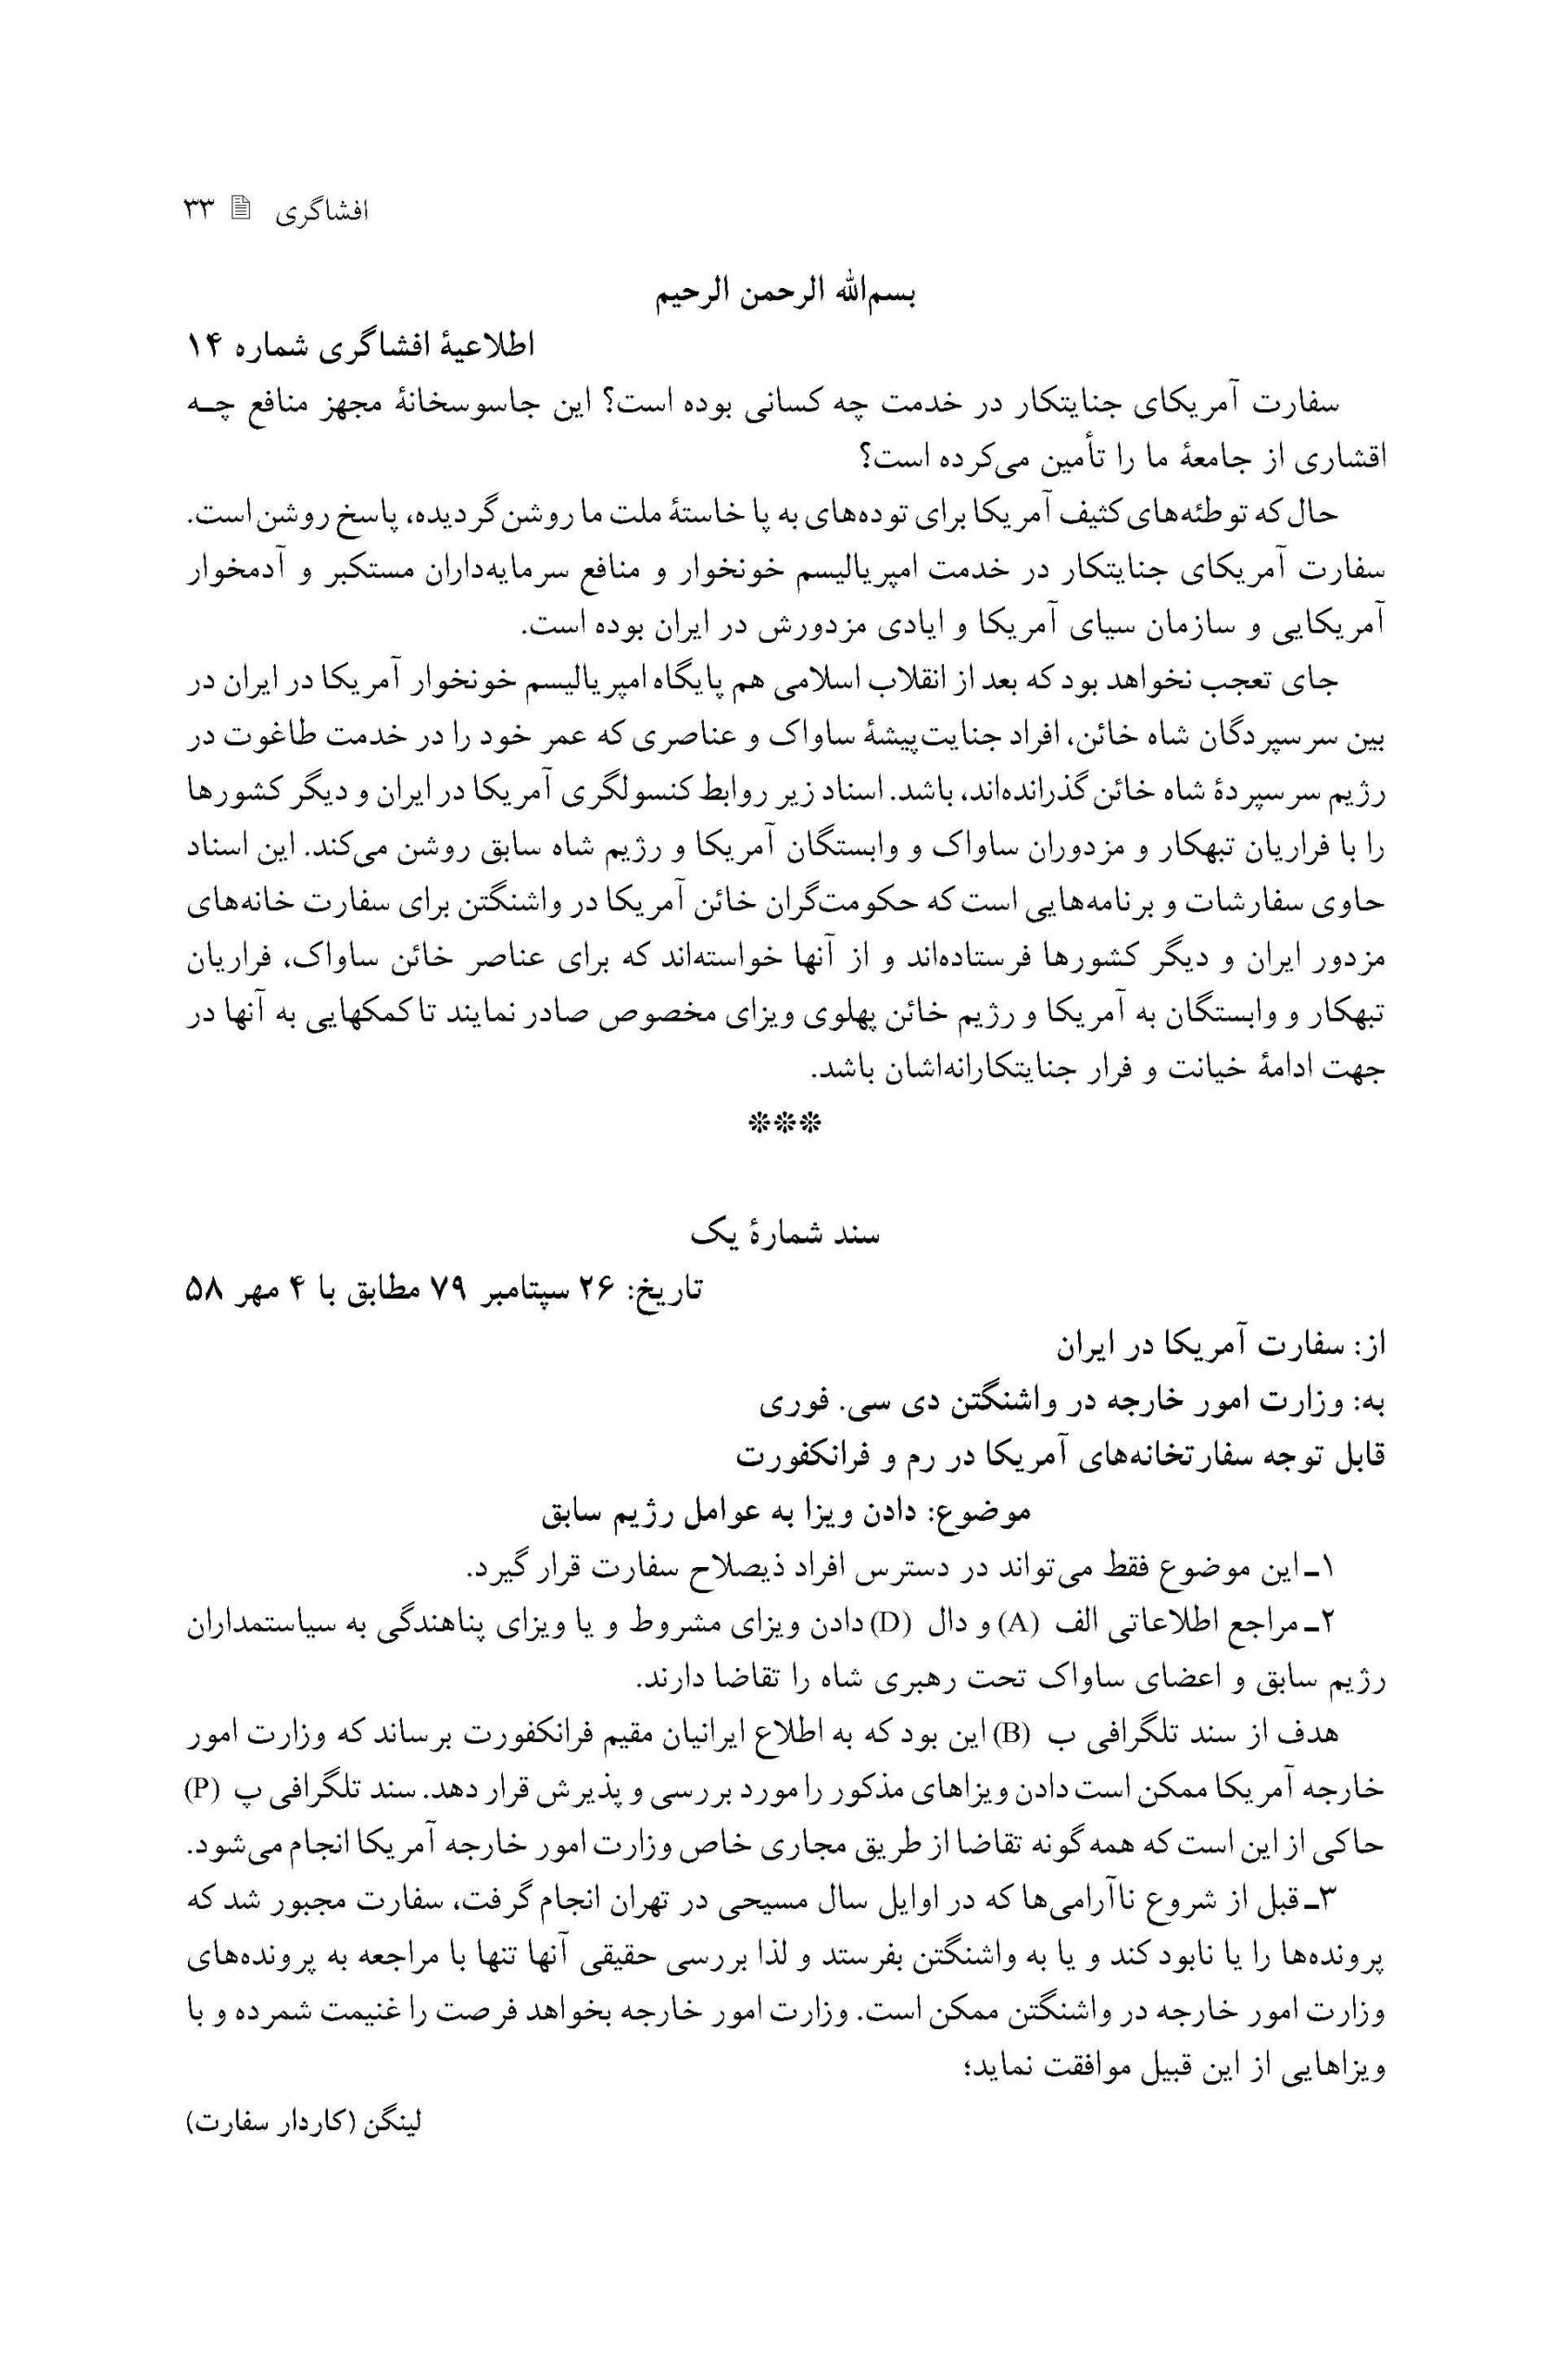 افشاگری ۳۳
بسم‌الله الرحمن الرحیم
اطلاعیهٔ افشاگری شماره ۱۴
سفارت آمریکای جنایتکار در خدمت چه کسانی بوده است؟ این جاسوسخانهٔ مجهز منافع چـه
اقشاری از جامعهٔ ما را تأمین می‌کرده است؟
حال که توطئه‌های کثیف آمریکا برای توده‌های به پا خاستهٔ ملت ما روشن گردیده، پاسخ روشن است.
سفارت آمریکای جنایتکار در خدمت امپریالیسم خونخوار و منافع سرمایه‌داران مستکبر و آدمخوار
آمریکایی و سازمان سیای آمریکا و ایادی مزدورش در ایران بوده است.
جای تعجب نخواهد بود که بعد از انقلاب اسلامی هم پایگاه امپریالیسم خونخوار آمریکا در ایران در
بین سرسپردگان شاه خائن، افراد جنایت‌پیشهٔ ساواک و عناصری که عمر خود را در خدمت طاغوت در
رژیم سرسپردهٔ شاه خائن گذرانده‌اند، باشد. اسناد زیر روابط کنسولگری آمریکا در ایران و دیگر کشورها
را با فراریان تبهکار و مزدوران ساواک و وابستگان آمریکا و رژیم شاه سابق روشن می‌کند. این اسناد
حاوی سفارشات و برنامه‌هایی است که حکومت‌گران خائن آمریکا در واشنگتن برای سفارت خانه‌های
مزدور ایران و دیگر کشورها فرستاده‌اند و از آنها خواسته‌اند که برای عناصر خائن ساواک، فراریان
تبهکار و وابستگان به آمریکا و رژیم خائن پهلوی ویزای مخصوص صادر نمایند تا کمکهایی به آنها در
جهت ادامهٔ خیانت و فرار جنایتکارانه‌اشان باشد.
***
سند شمارهٔ یک
تاریخ: ۲۶ سپتامبر ۷۹ مطابق با ۴ مهر ۵۸
از: سفارت آمریکا در ایران
به: وزارت امور خارجه در واشنگتن دی سی. فوری
قابل توجه سفارتخانه‌های آمریکا در رم و فرانکفورت
موضوع: دادن ویزا به عوامل رژیم سابق
۱ـ این موضوع فقط می‌تواند در دسترس افراد ذیصلاح سفارت قرار گیرد.
۲ـ مراجع اطلاعاتی الف (A) و دال (D) دادن ویزای مشروط و یا ویزای پناهندگی به سیاستمداران
رژیم سابق و اعضای ساواک تحت رهبری شاه را تقاضا دارند.
هدف از سند تلگرافی ب (B) این بود که به اطلاع ایرانیان مقیم فرانکفورت برساند که وزارت امور
خارجه آمریکا ممکن است دادن ویزاهای مذکور را مورد بررسی و پذیرش قرار دهد. سند تلگرافی پ (P)
حاکی از این است که همه گونه تقاضا از طریق مجاری خاص وزارت امور خارجه آمریکا انجام می‌شود.
۳ـ قبل از شروع ناآرامی‌ها که در اوایل سال مسیحی در تهران انجام گرفت، سفارت مجبور شد که
پرونده‌ها را یا نابود کند و یا به واشنگتن بفرستد و لذا بررسی حقیقی آنها تنها با مراجعه به پرونده‌های
وزارت امور خارجه در واشنگتن ممکن است. وزارت امور خارجه بخواهد فرصت را غنیمت شمرده و با
ویزاهایی از این قبیل موافقت نماید؛
لینگن (کاردار سفارت)